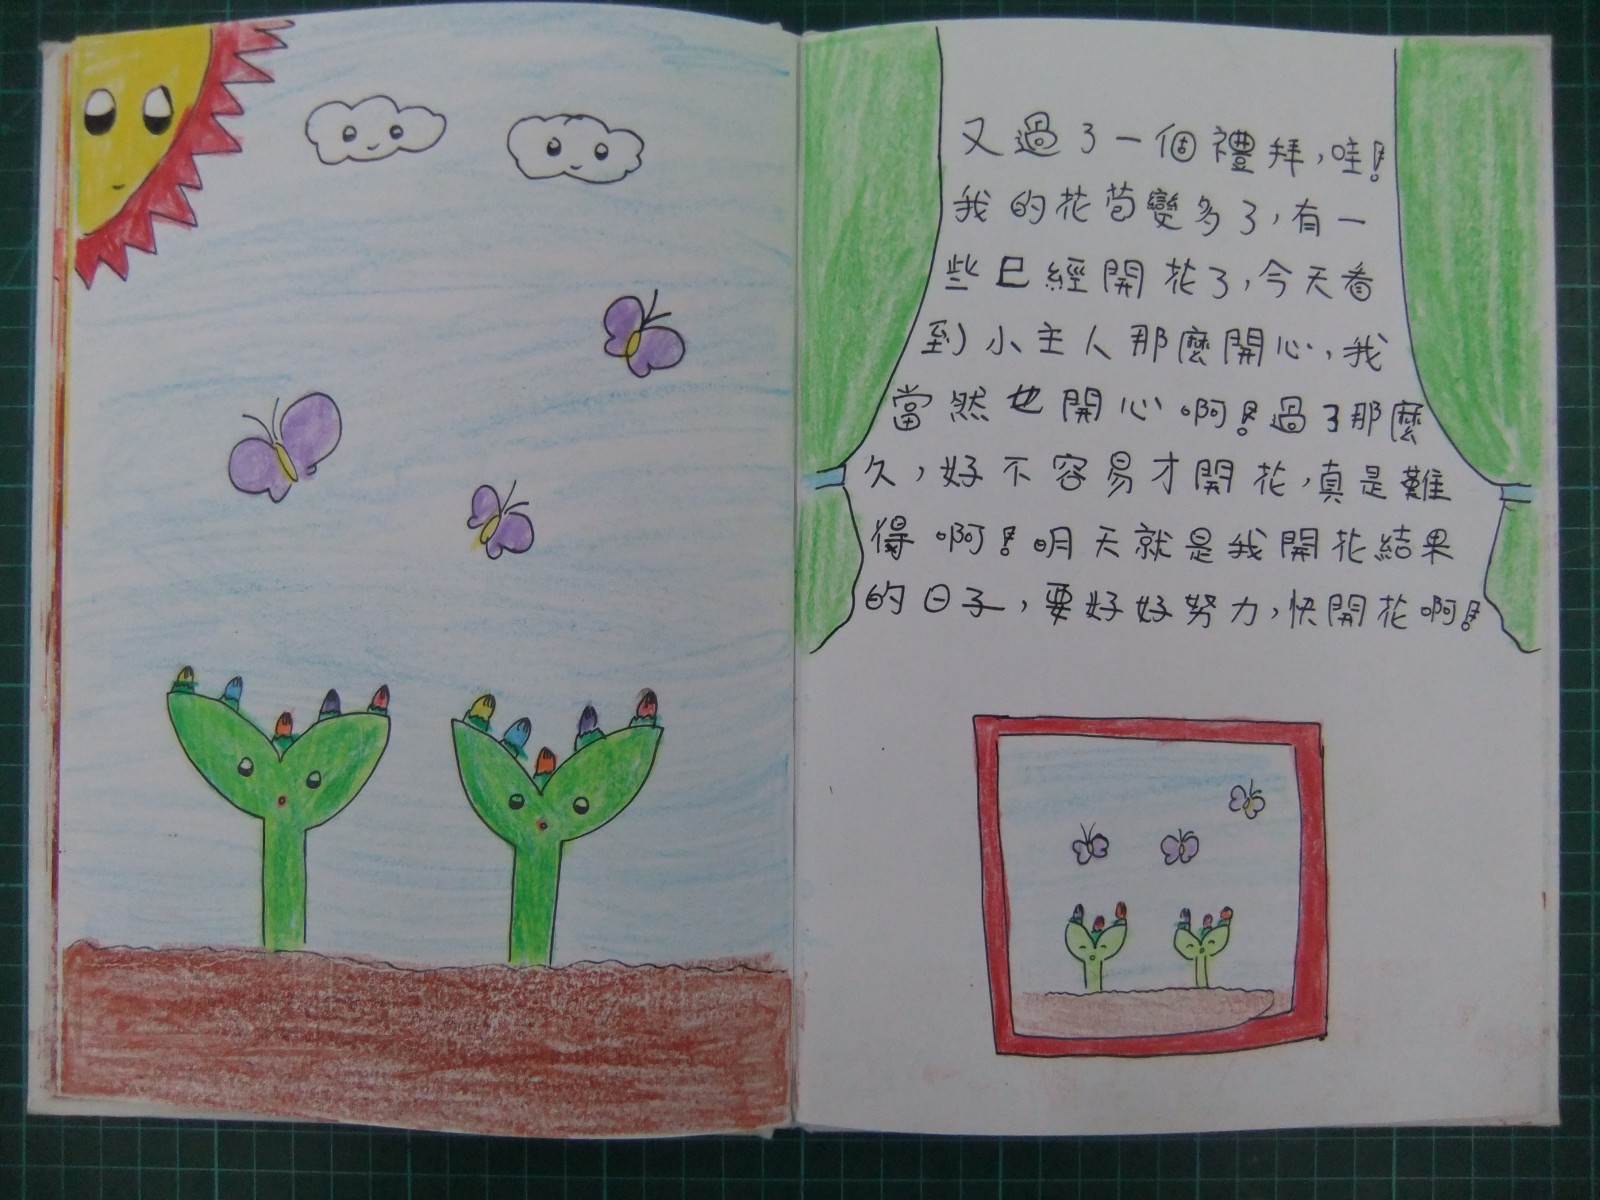 又過了一個禮拜，哇！
我的花苞變多了，有一
些已經開花了，今天看
到小主人那麼開心，我
當然也開心啊！過了那麼
久，好不容易才開花，真是難
得啊！明天就是我開花結果
的日子，要好好努力，快開花啊！